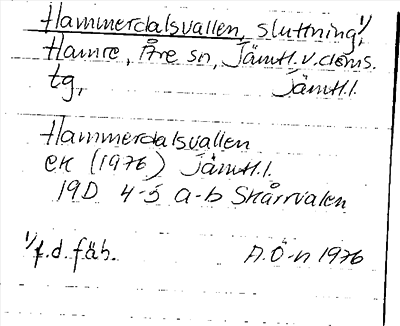 Hammerdalsvallen, sluttning,¹⁾
Hamre, Åre sn, Jämtl.v.doms.
tg, Jämtl.l.
Hammerdalsvallen
ek (1976) Jämtl.l.
19D 4-5 a-b Skårrvalen
¹⁾f.d.fäb. A.Ö-n 1976